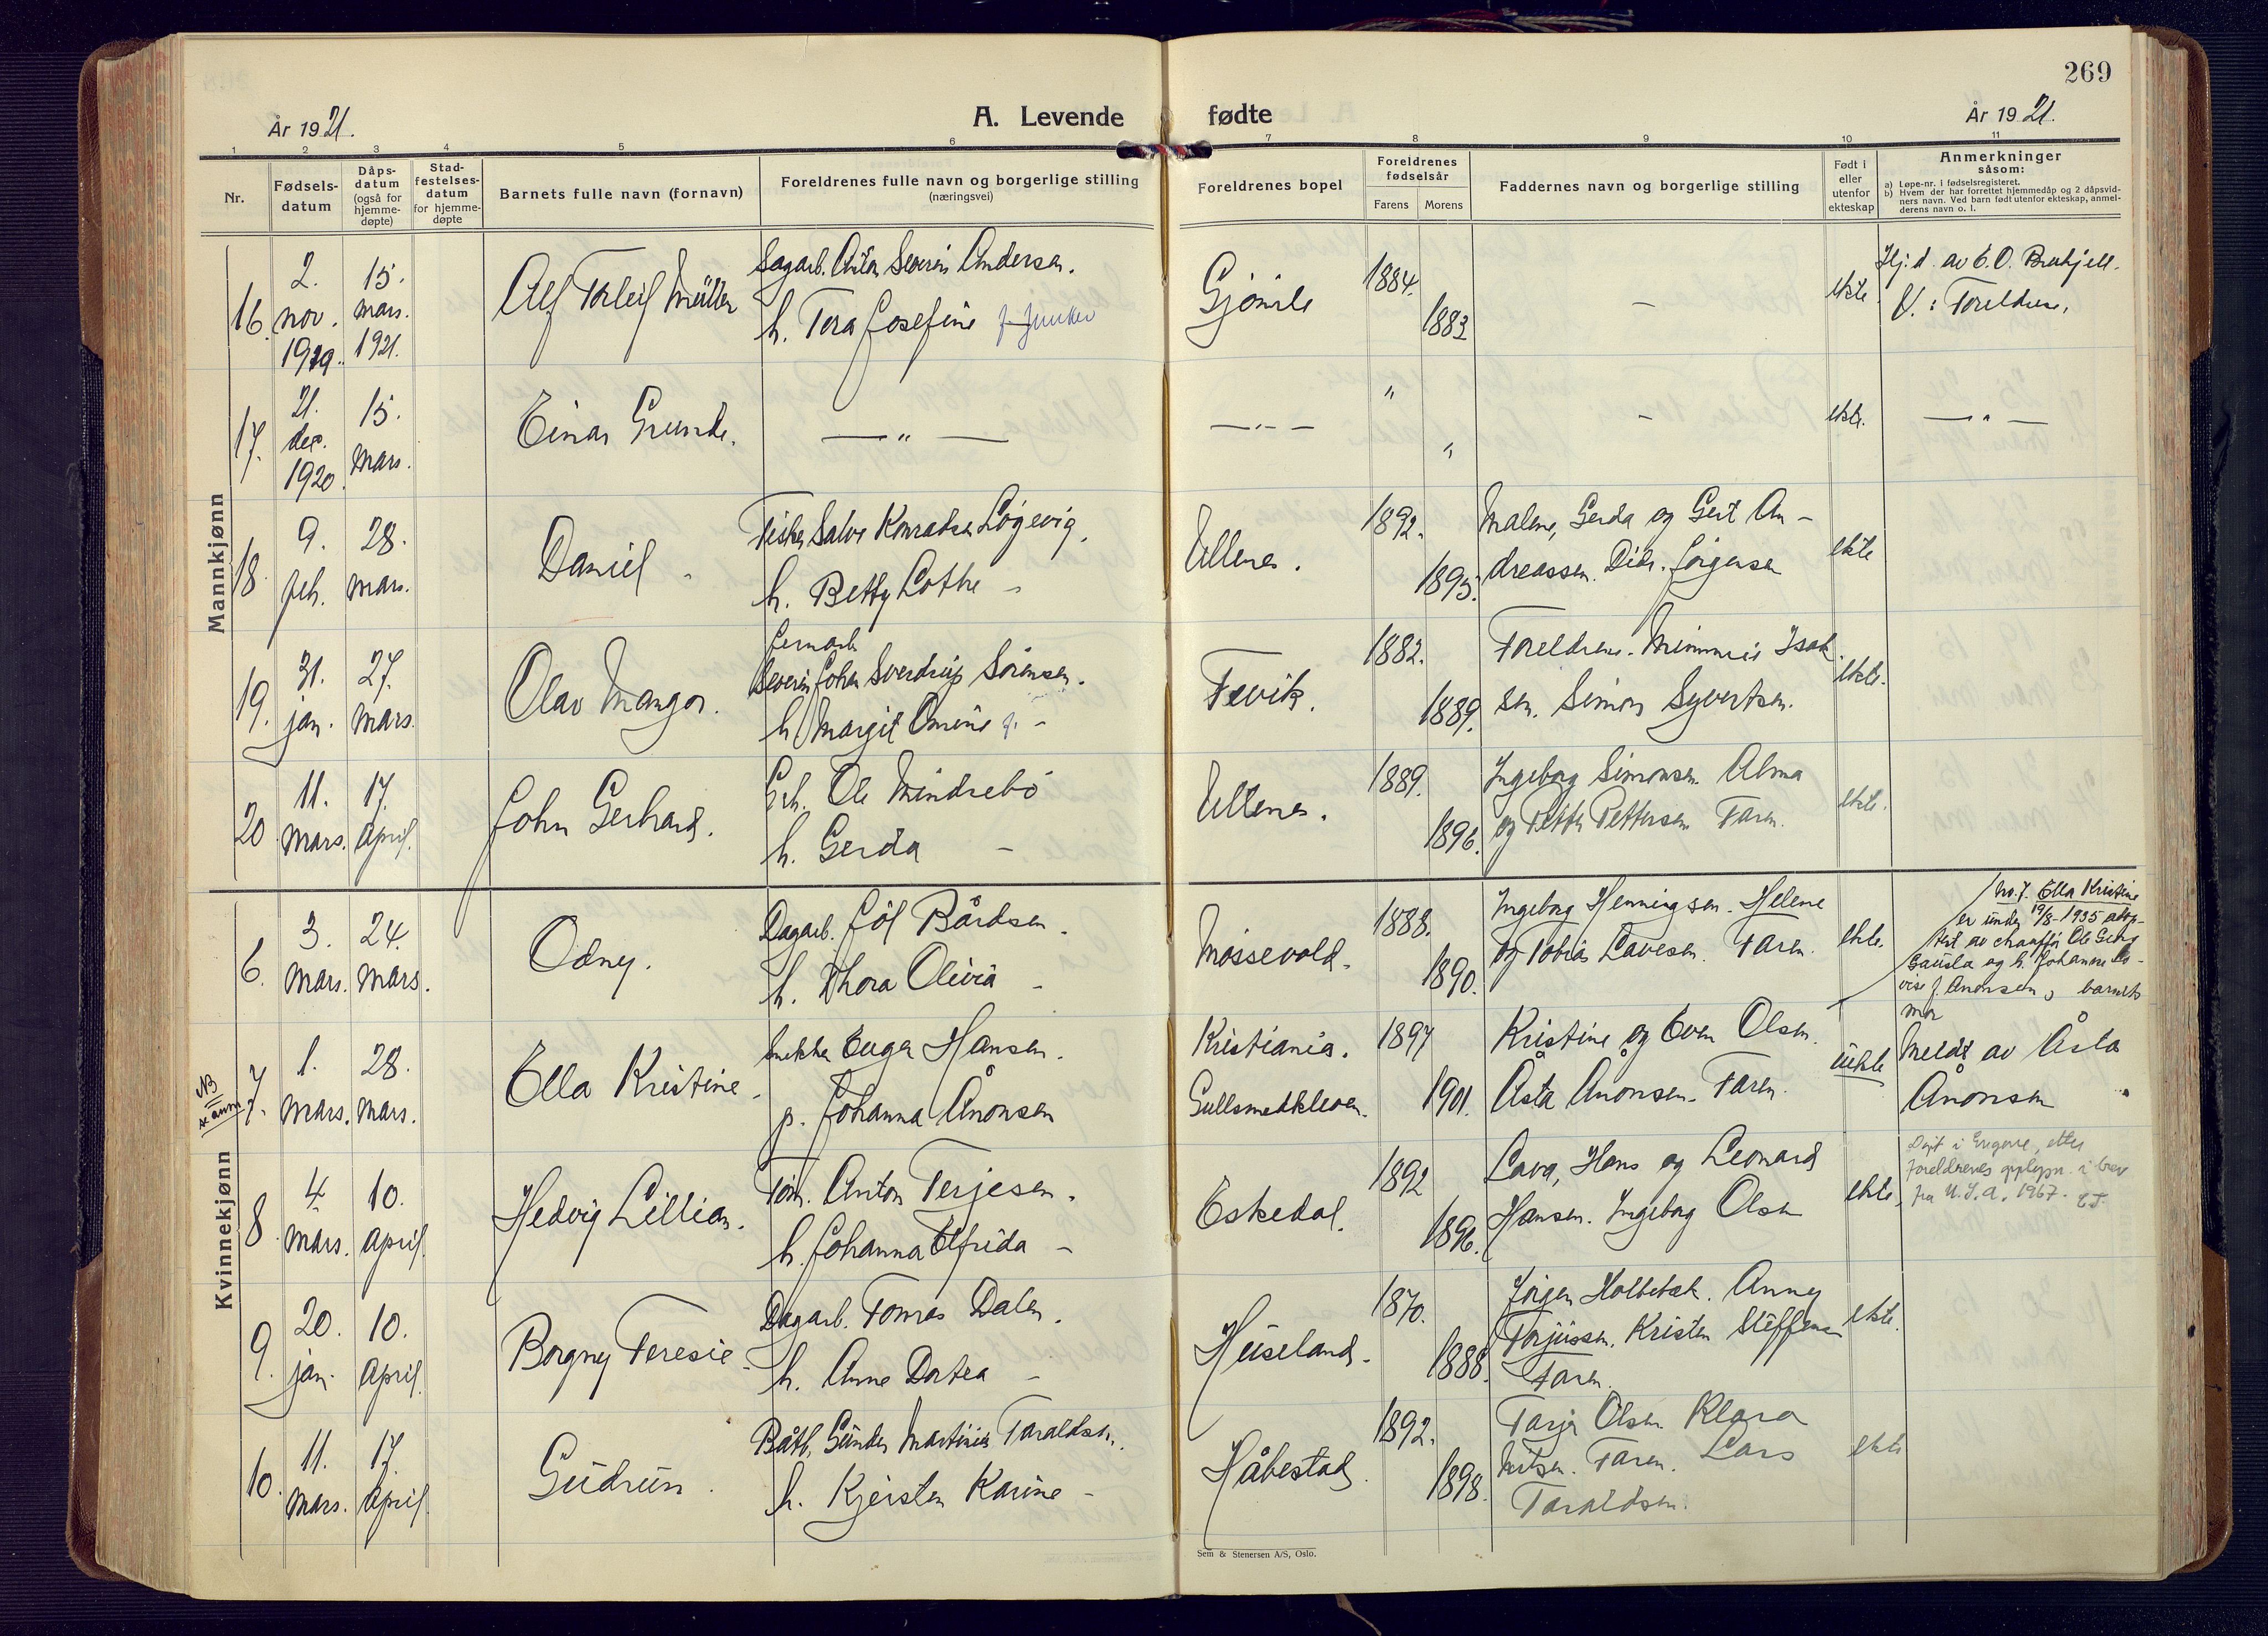 269
År 1921.
A. Levende fødte
År 1921.
1 2 3 4 5 6 7 8 9 10 11
Nr.
Fødselsdatum
Dåpsdatum (også for hjemmedøpte)
Stadfestelsesdatum for hjemmedøpte
Barnets fulle navn (fornavn)
Foreldrenes fulle navn og borgerlige stilling (næringsvei)
Foreldrenes bopel
Foreldrenes fødselsår
Farens Morens
Faddernes navn og borgerlige stilling
Født i eller utenfor ekteskap
Anmerkninger såsom:
a) Løpe-nr. i fødselsregisteret.
b) Hvem der har forrettet hjemmedåp og 2 dåpsvidners navn. Ved barn født utenfor ekteskap, anmelderens navn o. l.
Mannkjønn
16. 2. nov. 1919. 15. mars. 1921.
Alf Torleif Müller
Sagarb. Anton Severin Andersen.
h. Tora Josefine f. Junker
Gjømle 1884. 1883 - ekte.
Hj.d. av
V.: Foreldrene.
17. 21. dec. 1920. 15. mars.
Einar Grunde.
— " —
— " — " " - ekte. — " —
18 9. feb. 28. mars.
Daniel
Fisker Salve Konradsen Løgevig.
h. Betty Lothe -
Ullenes. 1892. 1895.
Malene, Gerda og Gert An-
dreassen. Didr. Jørgensen
ekte
19. 31. jan. 27. mars.
Olav Mangor.
Jernarb
Severin Johan Sverdrup Sörensen.
h. Margit Omine f. -
Fevik. 1882. 1889.
Foreldrene. Mimmie Isak
sen. Simon Syvertsen.
ekte.
20 11. mars. 17. april.
John Gerhard.
Grb. Ole Mindrebö
h. Gerda -
Ullenes. 1889. 1896.
Ingeborg Simonsen. Alma
og Petter Pettersen Faren.
ekte.
Kvinnekjønn
6. 3. mars. 24. mars.
Odny.
Dagarb. Joël Bårdsen.
h. Thora Olivia -
Møssevold. 1888. 1890.
Ingeborg Henningsen. Helene
og Tobias Lavesen. Faren.
ekte.
No. 7. Ella Kristine
er under 19/8-1935 adop-
tert av chauffør Ole Georg
Gausla og h. Johanne Lo-
vise f. Anonsen, barnets
mor
NB
anm
7. 1. mars. 28. mars.
Ella Kristine.
Snekker Eugen Hansen.
p. Johanna Ånonsen
Kristiania. Gullsmedkleven. 1897 1901.
Kristine og Even Olsen.
Åsta Ånonsen. Faren.
uekte
Meldt av Åsta
Ånonsen
8 4. mars. 10. april.
Hedvig Lillian.
Töm. Anton Terjesen.
h. Johanna Elfrida -
Eskedal. 1892 1896.
Lava, Hans og Leonard
Hansen. Ingeborg Olsen
ekte,
Døpt i Engene, etter
foreldrenes opplysn. i brev
fra U.S.A. 1967.
9. 20. jan. 10. april.
Borgny Teresie.
Dagarb. Tomas Dalen.
h. Anne Dortea -
Huseland. 1870. 1888.
Jörgen Holtebæk. Anny
Torjussen. Kristen Steffensen
Faren.
ekte.
10. 11. mars. 17. april.
Gudrun.
Båtb. Gunder Martinius Taraldsen.
h. Kjersten Karine -
Håbestad. 1892. 1898.
Tarje Olsen Klara
Faren. Lars
Taraldsen.
ekte
Sem & Stenersen A/S, Oslo.